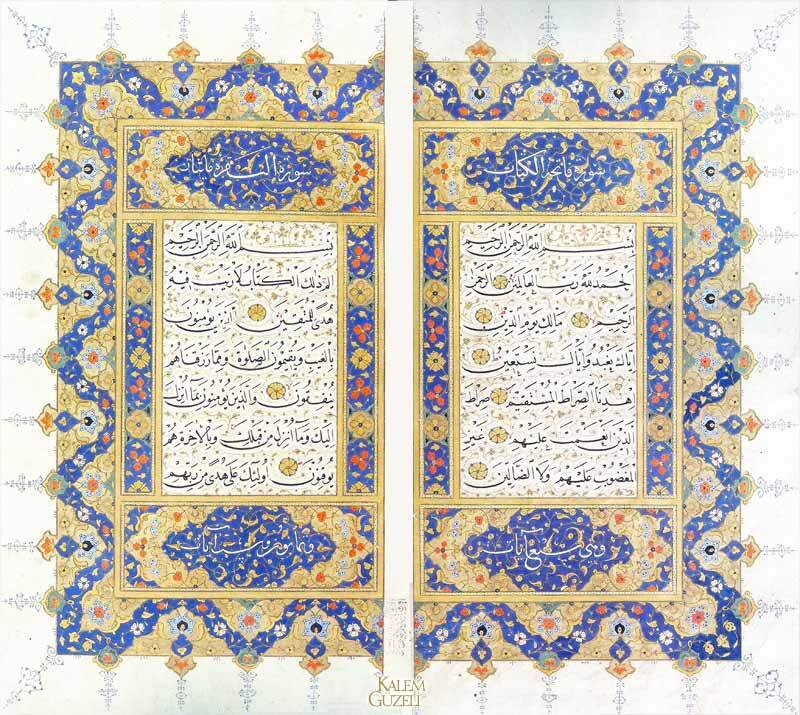 سورة فاتحة الكتاب
بِسْمِ اللهِ الرَّحْمٰنِ الرَّحِيمِ
اَلْحَمْدُ لِلّٰهِ رَبِّ الْعَالَمِينَ الرَّحْمٰنِ
الرَّحِيمِ مَالِكِ يَوْمِ الدِّينِ
اِيَّاكَ نَعْبُدُ وَاِيَّاكَ نَسْتَعِينُ
اِهْدِنَا الصِّرَاطَ الْمُسْتَقِيمَ صِرَاطَ
الَّذِينَ اَنْعَمْتَ عَلَيْهِمْ غَيْرِ
الْمَغْضُوبِ عَلَيْهِمْ وَلَا الضَّالِّينَ
وهي سبع آيات
سورة البقرة مائتان
بِسْمِ اللهِ الرَّحْمٰنِ الرَّحِيمِ
الم ذٰلِكَ الْكِتَابُ لَا رَيْبَ فِيهِ
هُدًى لِلْمُتَّقِينَ الَّذِينَ يُؤْمِنُونَ
بِالْغَيْبِ وَيُقِيمُونَ الصَّلٰوةَ وَمِمَّا رَزَقْنَاهُمْ
يُنْفِقُونَ وَالَّذِينَ يُؤْمِنُونَ بِمَا اُنْزِلَ
اِلَيْكَ وَمَا اُنْزِلَ مِنْ قَبْلِكَ وَبِالْاٰخِرَةِ هُمْ
يُوقِنُونَ اُولٰئِكَ عَلٰى هُدًى مِنْ رَبِّهِمْ
وثمانون وست آيات
KALEM
GÜZELİ